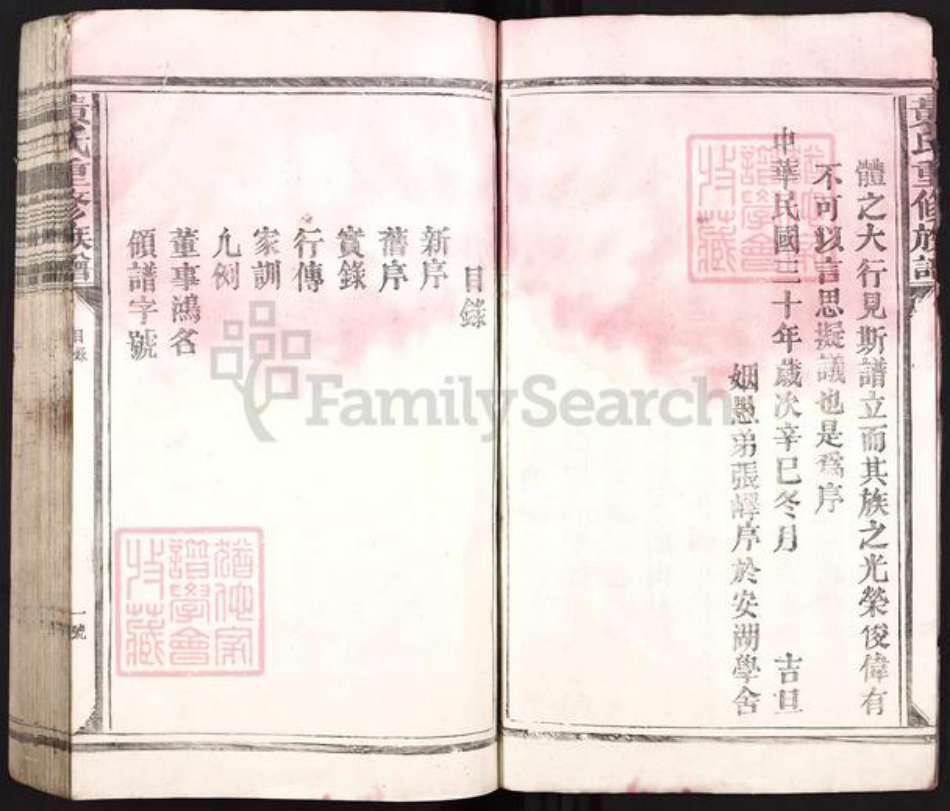 黃氏重修族譜
體之大行見斯譜立而其族之光榮俊偉有
不可以言思擬議也是爲序
中華民國三十年歲次辛巳冬月 吉旦
姻愚弟張嶧序於安湖學舍
目錄
新序
舊序
實錄
行傳
家訓
凡例
董事鴻名
領譜字號
黃氏重修族譜
目錄
一號
猶他家
譜學會
收藏
猶他家
譜學會
收藏
FamilySearch